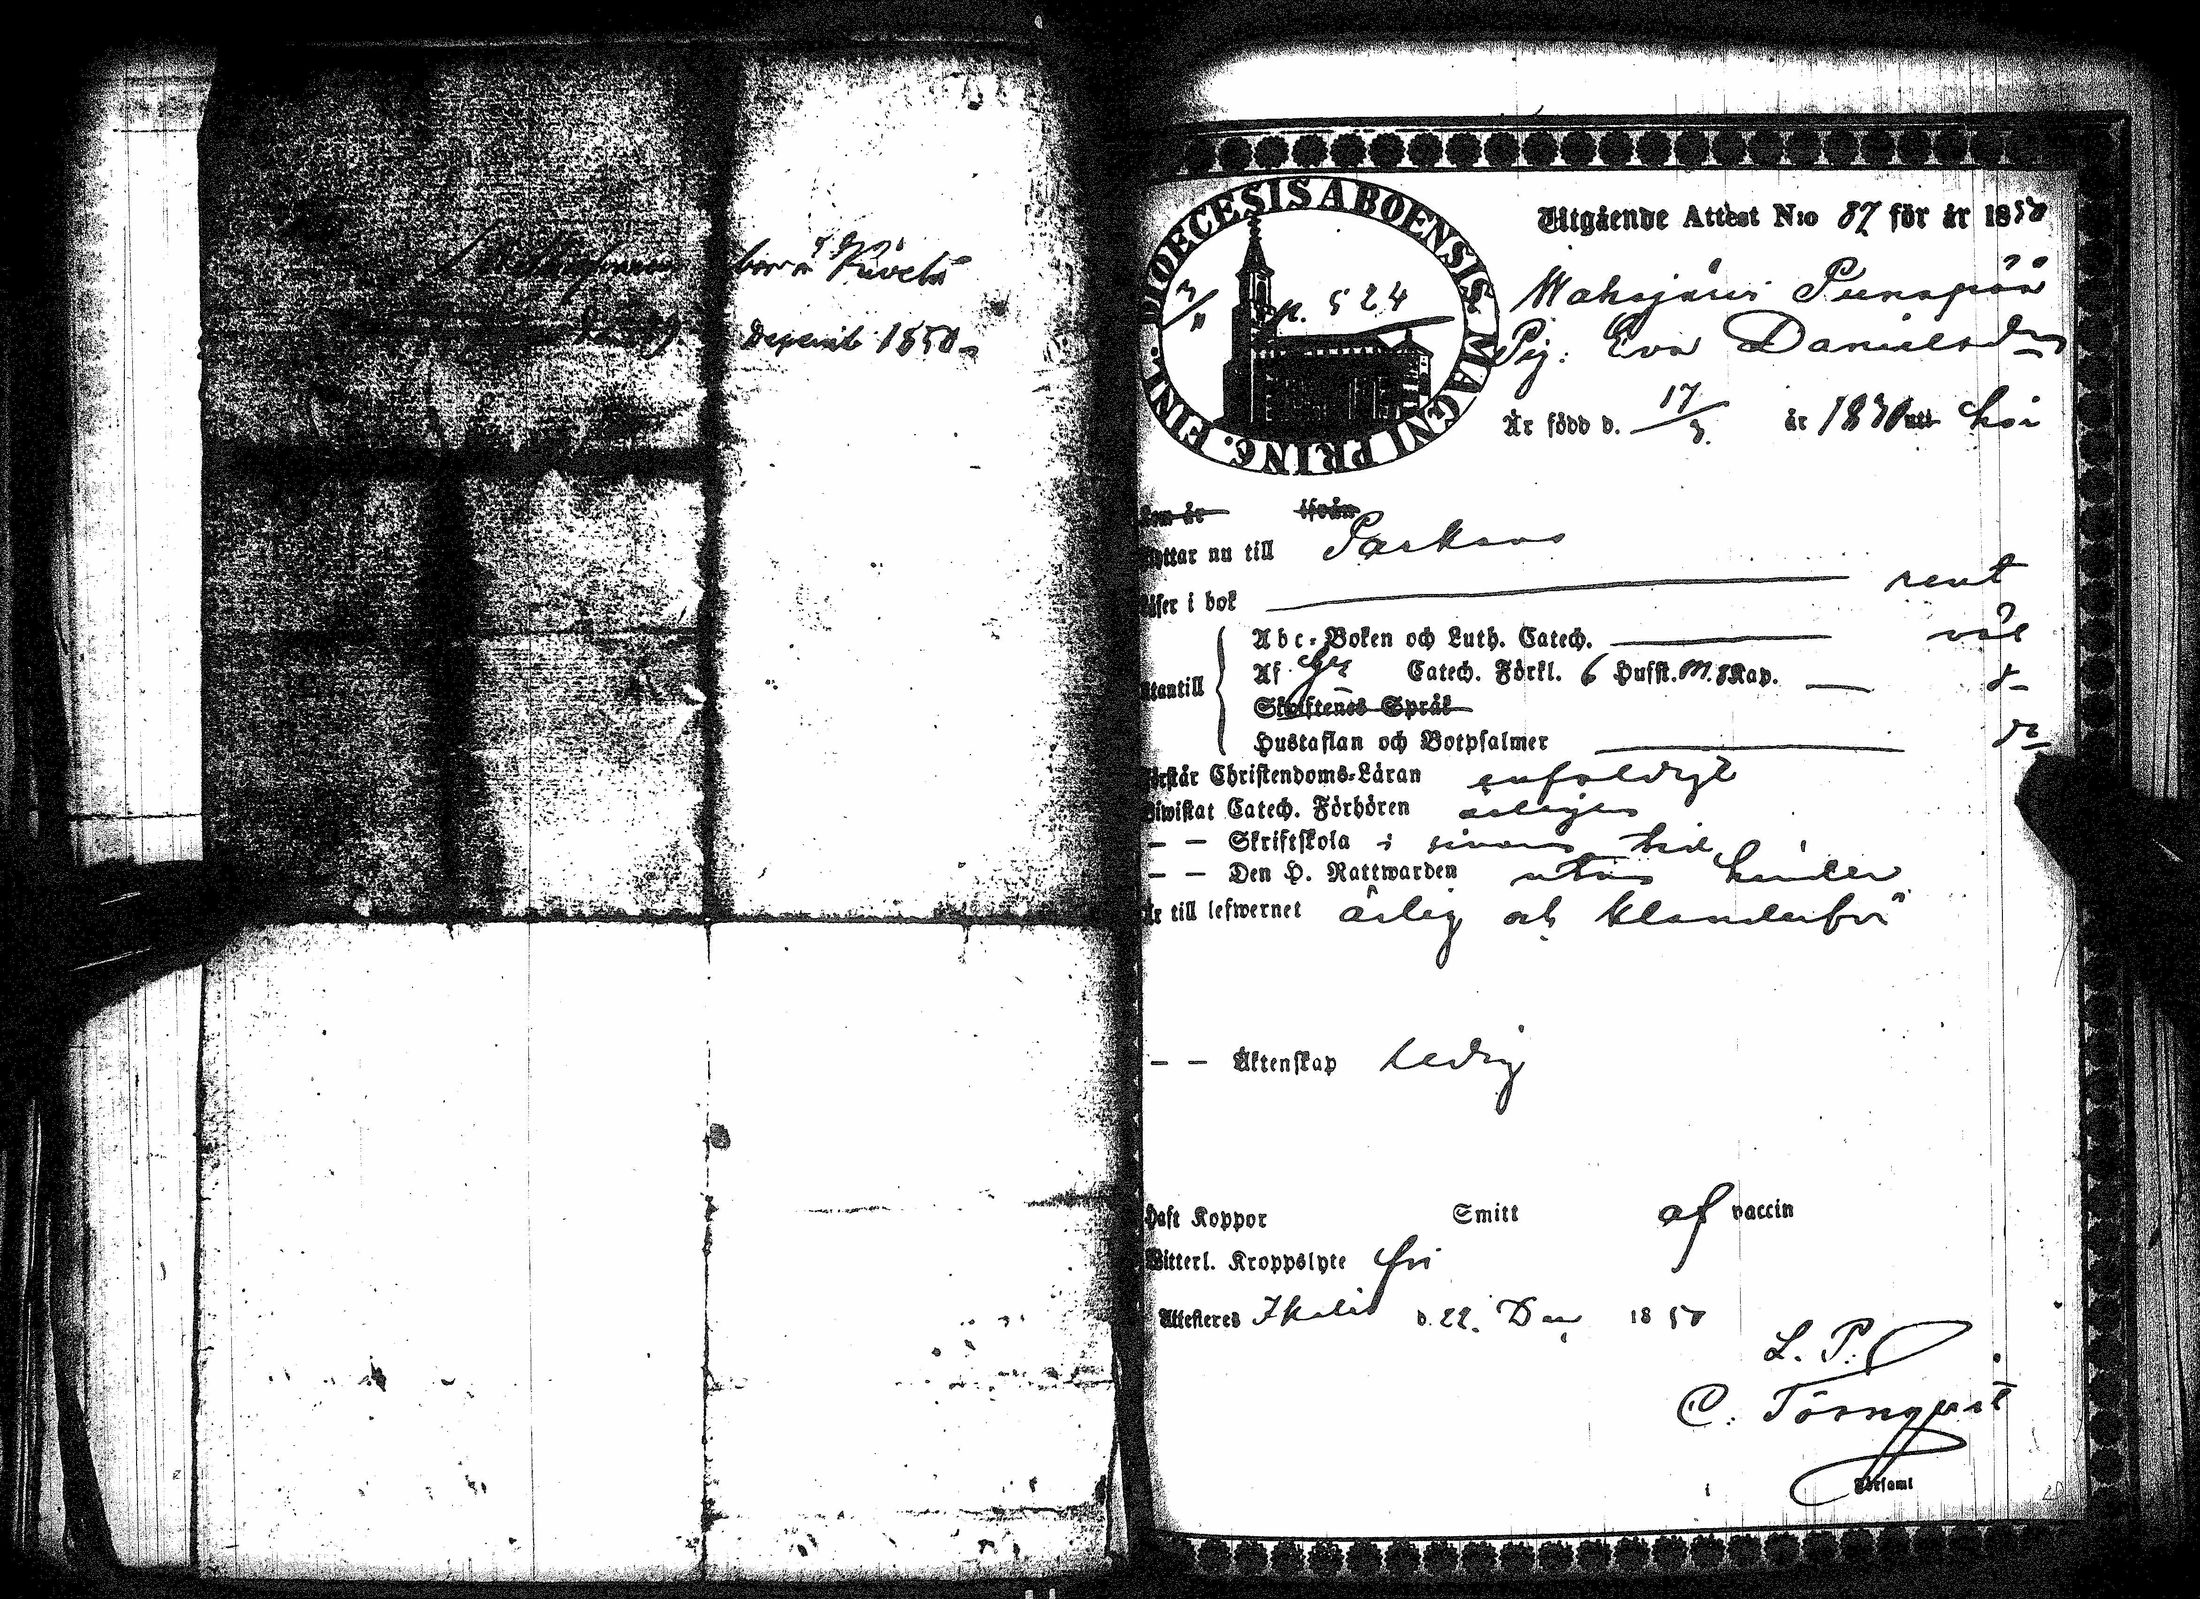 Decemb 1850
DIOECESIS ABOENSIS MAGNI PRINC. FINL.
p. 524
Utgående Attest N:o 87 för år 1850
Mahajärvi Punapää
Pig. Eva Danielsdr
Är född d. 17/3 år 1830
kom år ifrån
flyttar nu till Parkano
Läser i bok rent
Utantill
Abc-Boken och Luth. Catech. väl
Af Catech. Förkl. 6 Hufst. M. Kap.
Skriftenes Språk
Hustaflan och Botpsalmer
Förstår Christendoms-Läran enfaldigt
Biwistat Catech. Förhören årligen
— — Skriftskola i sinom tid
— — Den H. Nattwarden utan hinder
Är till lefwernet ärlig och klanderfri
— — Äktenskap ledig
Haft Koppor Smitt af vaccin
Witterl. Kroppslyte fri
Attesteres Ikalis d. 22. Dec 1850
L. P.
C. Törnqvist
Församl